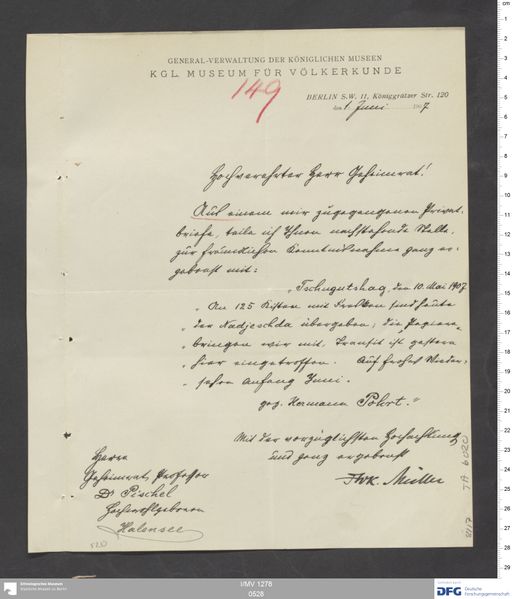 GENERAL-VERWALTUNG DER KÖNIGLICHEN MUSEEN
KGL. MUSEUM FÜR VÖLKERKUNDE
149
BERLIN S.W. 11, Königgrätzer Str. 120
den 1. Juni 1907
Hochverehrter Herr Geheimrat!
Aus einem mir zugegangenen Privat-
briefe, teile ich Ihnen nachstehende Stelle,
zur freundlichen Kenntnisnahme ganz er-
gebenst mit:
„Tschugutshag, den 10. Mai 1907
„ An 125 Kisten mit Fresken sind heute
„ der Nadjeschda übergeben; die Papiere
„ bringen wir mit, Transit ist gestern
„ hier eingetroffen. Auf frohes Wieder-
„ sehen Anfang Juni.
gez. Hermann Pohrt."
Mit der vorzüglichsten Hochachtung
und ganz ergebenst
FWK. Müller
Herrn
Geheimrat Professor
Dr Pischel
Hochwohlgeboren
Halensee
TA 6020
I/MV 1276
0528
Ethnologisches Museum
Staatliche Museen zu Berlin
DFG Deutsche
Forschungsgemeinschaft